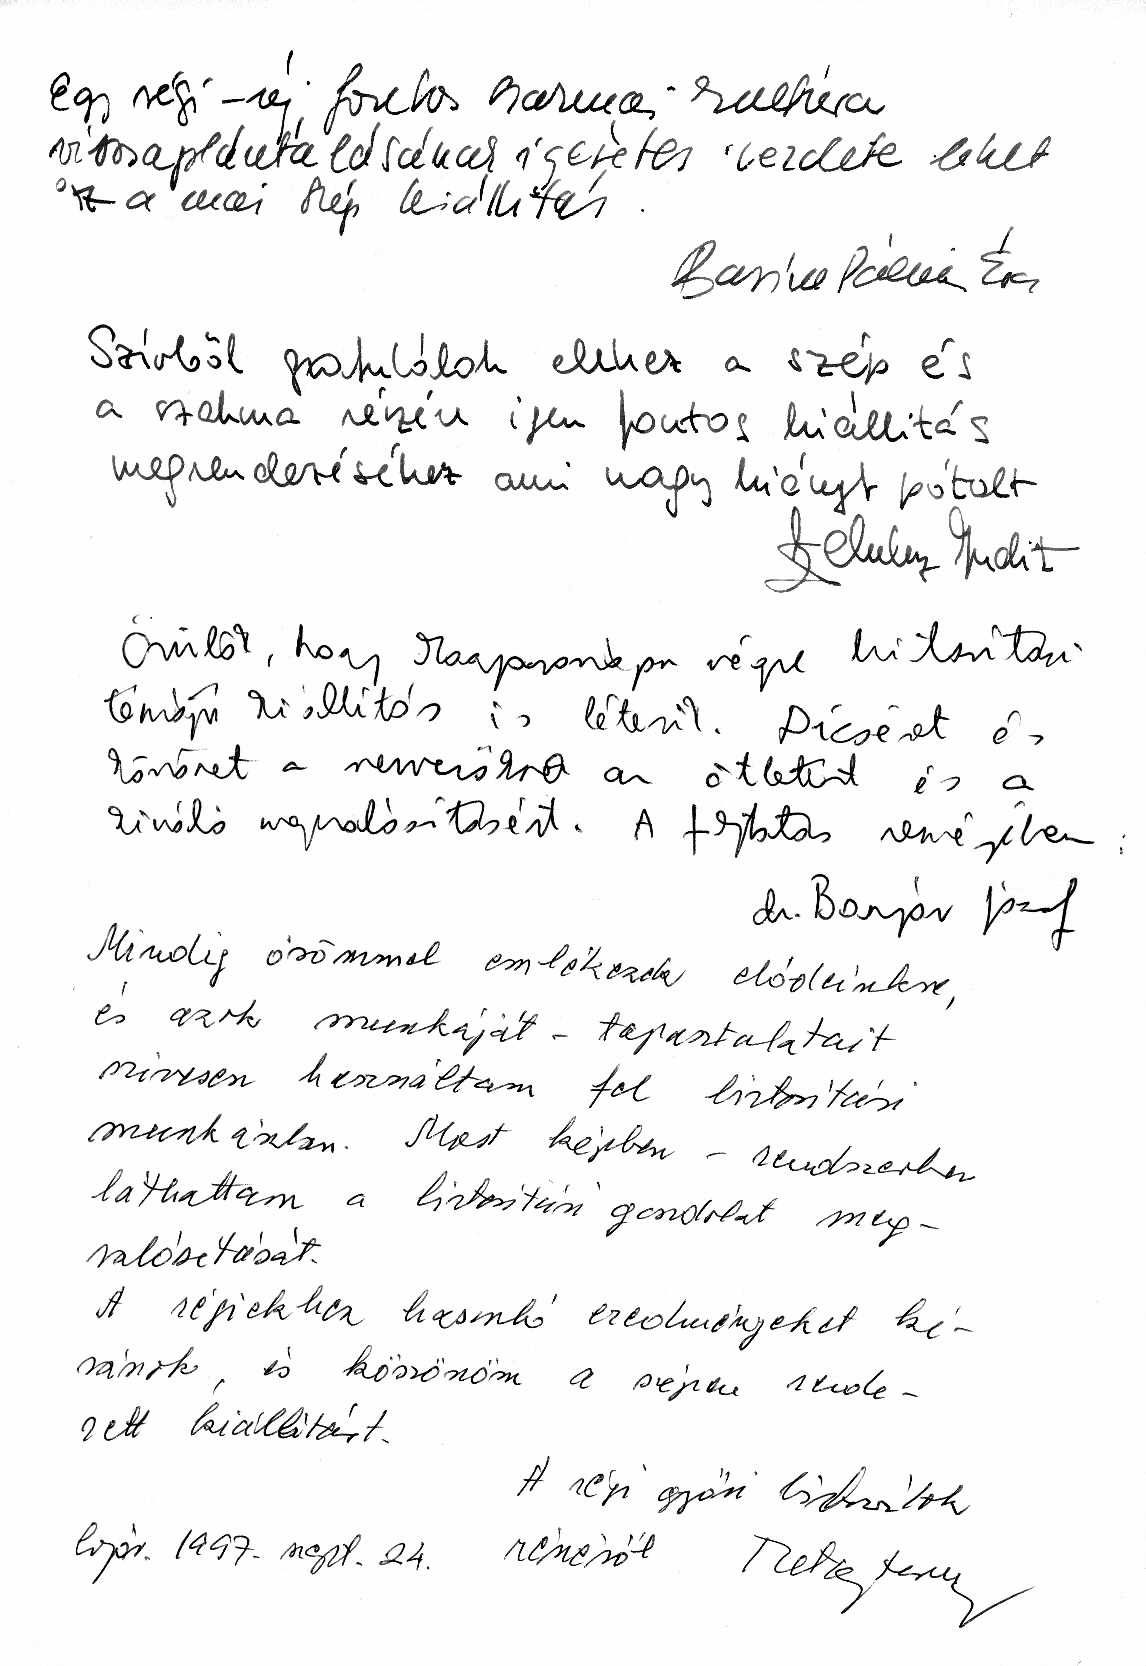 Egy régi-új, fontos szakmai kultúra
visszaplántálásának ígéretes kezdete lehet
ez a mai szép kiállítás.
Éva
Szívből gratulálok ehhez a szép és
a szakma részére igen fontos kiállítás
megrendezéséhez ami nagy hiányt pótolt
Judit
Örülök, hogy Magyarországon végre biztosítási
témájú kiállítás is létesül. Dícséret és
köszönet a szervezőknek az ötletért és a
kiváló megvalósításért. A folytatás reményében:
dr. József
Mindig örömmel emlékezek elődeinkre,
és azok munkáját - tapasztalatait
szívesen használtam fel biztosítási
munkámban. Most képben - rendszerben
láthattam a biztosítási gondolat meg-
valósítását.
A régiekhez hasonló eredményeket kí-
vánok, és köszönöm a szépen rende-
zett kiállítást.
A régi győri biztosítók
részéről
1997. szept. 24.